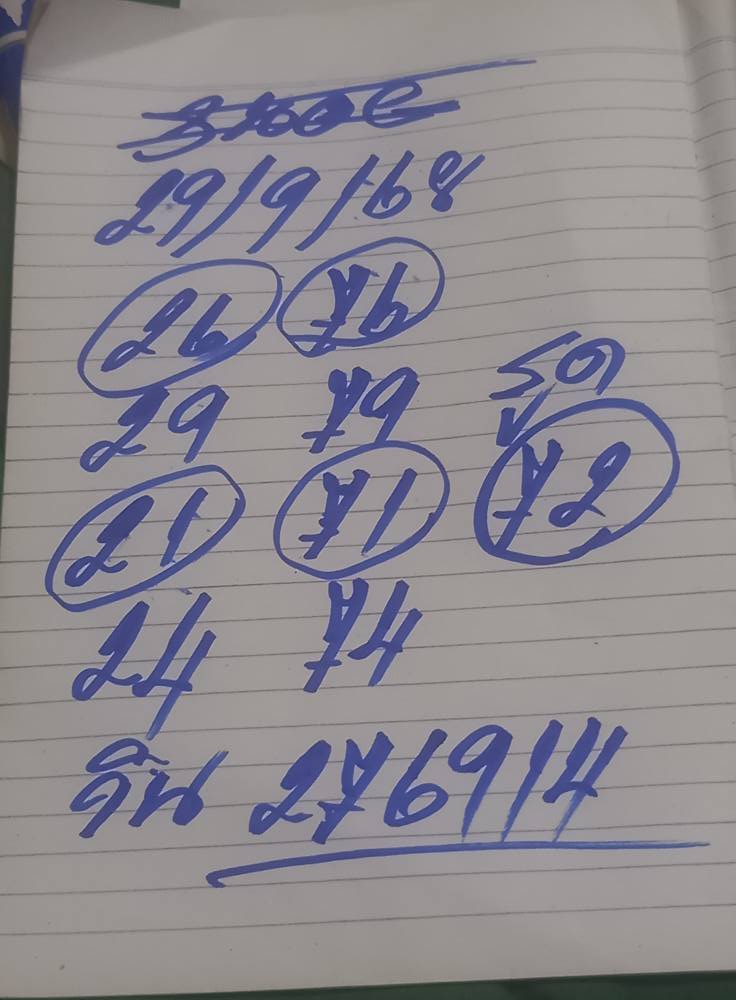 29/9/68
26 76
29 79 รูด
21 71 72
24 74
วิน 276914